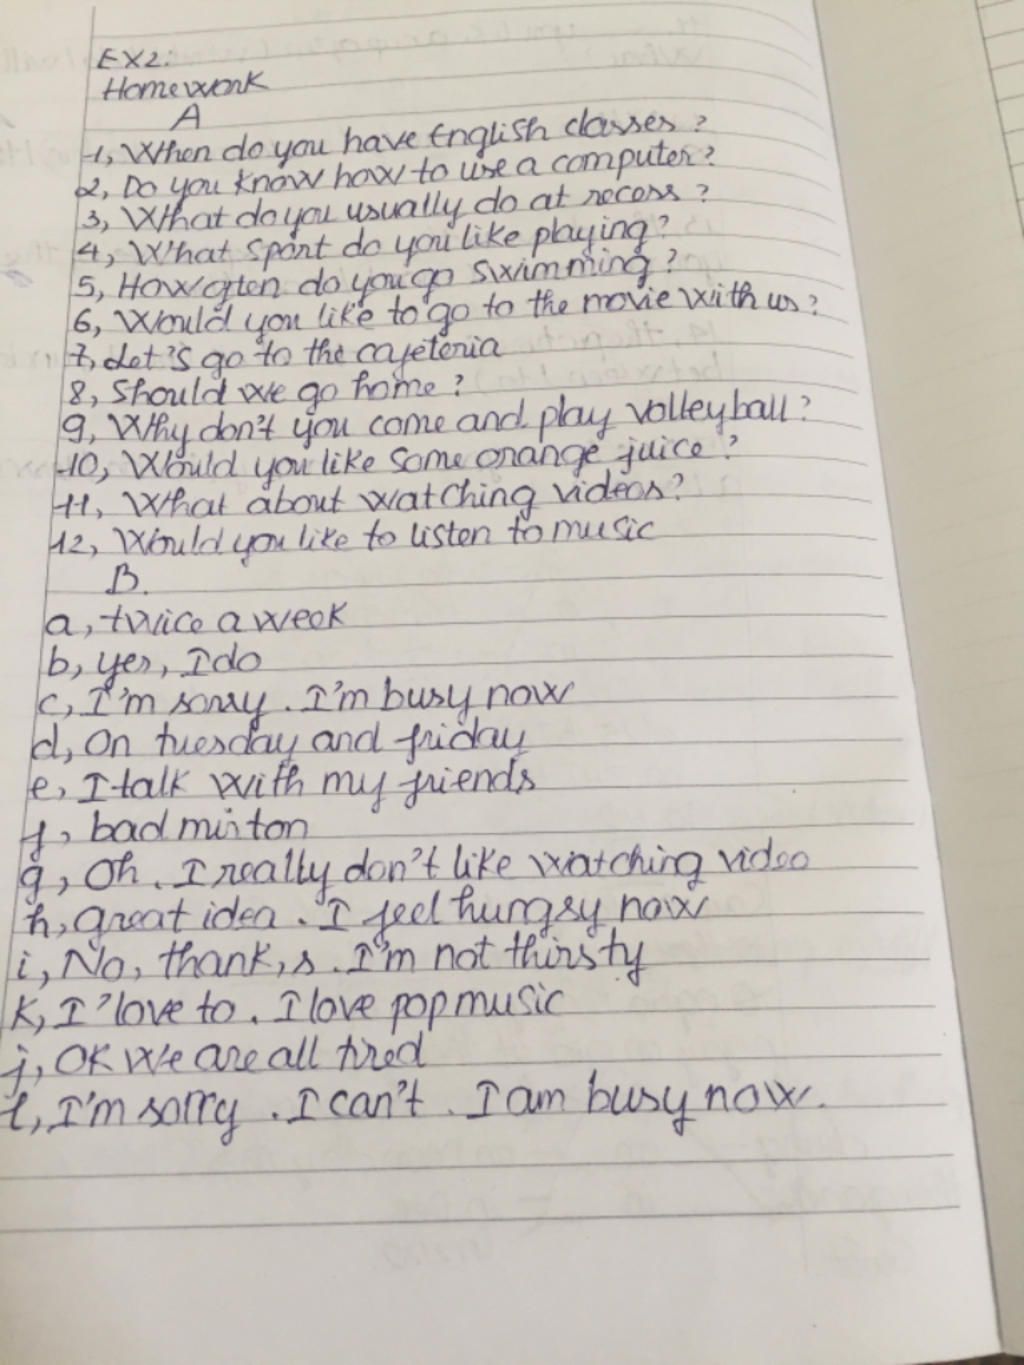 EX2:
Homework
A
1, When do you have English classes?
2, Do you know how to use a computer?
3, What do you usually do at recess?
4, What sport do you like playing?
5, How often do you go swimming?
6, Would you like to go to the movie with us?
7, Let's go to the cafeteria
8, Should we go home?
9, Why don't you come and play volleyball?
10, Would you like some orange juice?
11, What about watching videos?
12, Would you like to listen to music
B.
a, twice a week
b, yes, I do
c, I'm sorry. I'm busy now
d, On tuesday and friday
e, I talk with my friends
f, badminton
g, Oh. I really don't like watching video
h, great idea. I feel hungsy now
i, No, thank,s. I'm not thirsty
k, I'love to. I love pop music
j, OK We are all tired
l, I'm sorry. I can't. I am busy now.